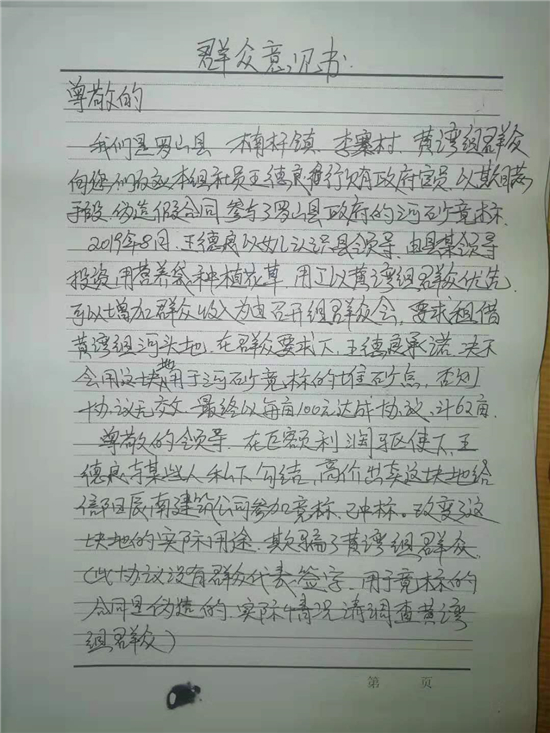 群众意见书
尊敬的
我们是罗山县 楠杆镇、李寨村、黄湾组群众
向您们反应本组社员王德良推行贿政府官员以欺瞒
手段 伪造假合同 参与了罗山县政府的河砂竞标.
2019年8月.王德良以女儿认识县领导.由县某领导
投资.用营养袋种植花草.用工以黄湾组群众优先.
可以增加群众收入为由召开组群众会,要求租借
黄湾组河头地.在群众要求下.王德良承诺.决不
会用这块地用于河砂竞标的堆砂点,否则
协议无效 最终以每亩100元达成协议.计62亩.
尊敬的领导.在巨额利润驱使下.王
德良与某些人私下勾结,高价出卖这块地给
信阳辰南建筑公司参加竞标.中标。改变了这
块地的实际用途.欺骗了黄湾组群众.
(此协议没有群众代表签字.用于竞标的
合同是伪造的.实际情况请调查黄湾
组群众)
第 页